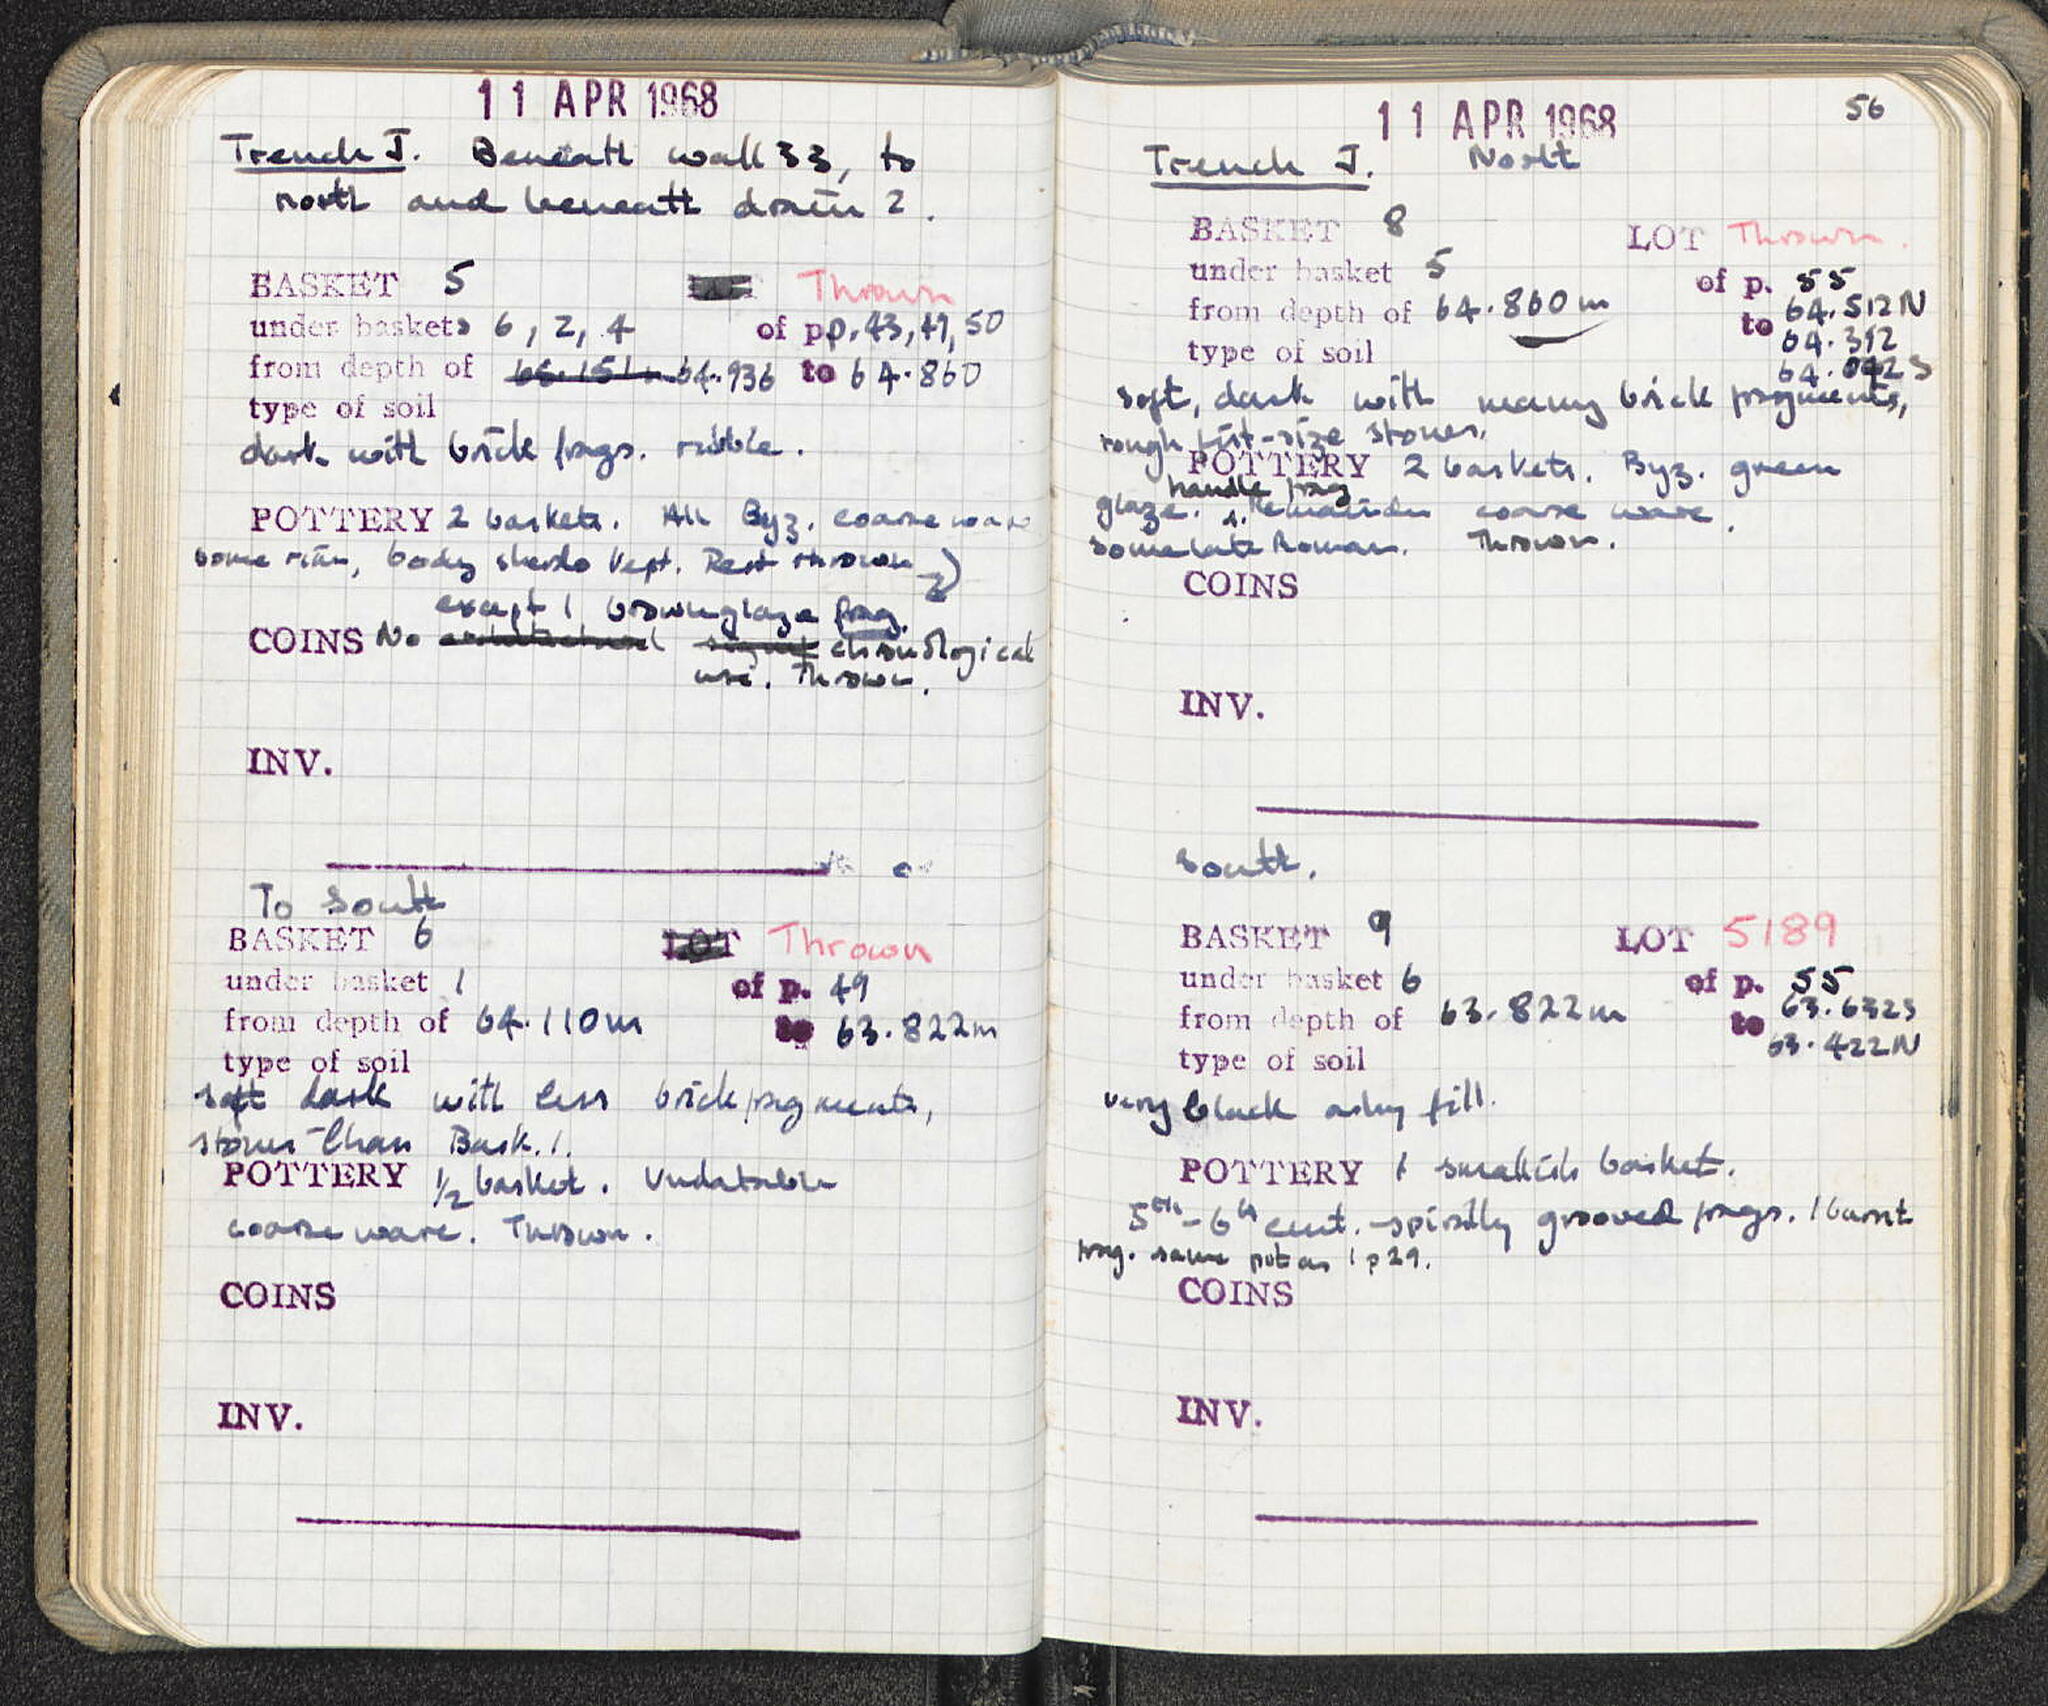 11 APR 1968
Trench J. Beneath wall 33, to
north and beneath drain 2.
BASKET 5 Thrown
under baskets 6, 2, 4 of pp. 43, 49, 50
from depth of 65.151m 64.936 to 64.860
type of soil
dark with brick frags. rubble.
POTTERY 2 baskets. All Byz. coarse ware
some rim, body sherds kept. Rest thrown
except 1 brown glaze frag.
COINS No chronological
use. Thrown.
INV.
To South
BASKET 6 LOT Thrown
under basket 1 of p. 49
from depth of 64.110m to 63.822m
type of soil
soft dark with less brick fragments,
stones than Bask. 1.
POTTERY 1/2 basket. Undatable
coarse ware. Thrown.
COINS
INV.
11 APR 1968
56
Trench J. North
BASKET 8 LOT Thrown.
under basket 5 of p. 55
from depth of 64.860m to 64.512N
64.312
64.042S
type of soil
soft, dark with many brick fragments,
rough fist-size stones.
POTTERY 2 baskets. Byz. green
handle frag
glaze. Remainder coarse ware.
some late Roman. Thrown.
COINS
INV.
South.
BASKET 9 LOT 5189
under basket 6 of p. 55
from depth of 63.822m to 63.632S
63.422N
type of soil
very black ashy fill.
POTTERY 1 smallish basket.
5th-6th cent. spirally grooved frags. 1 burnt
frag. same pot as 1 p 29.
COINS
INV.